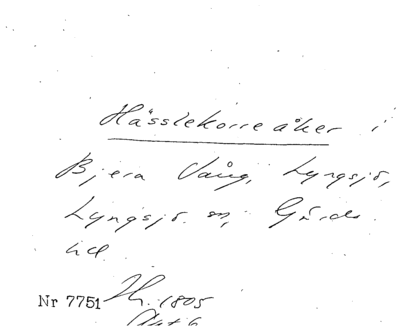 Hässlekorreåker i
Bjera Vång, Lyngsjö,
Lyngsjö sn, Gärds
hd.
Nr 7751 Lh. 1805
Akt 6